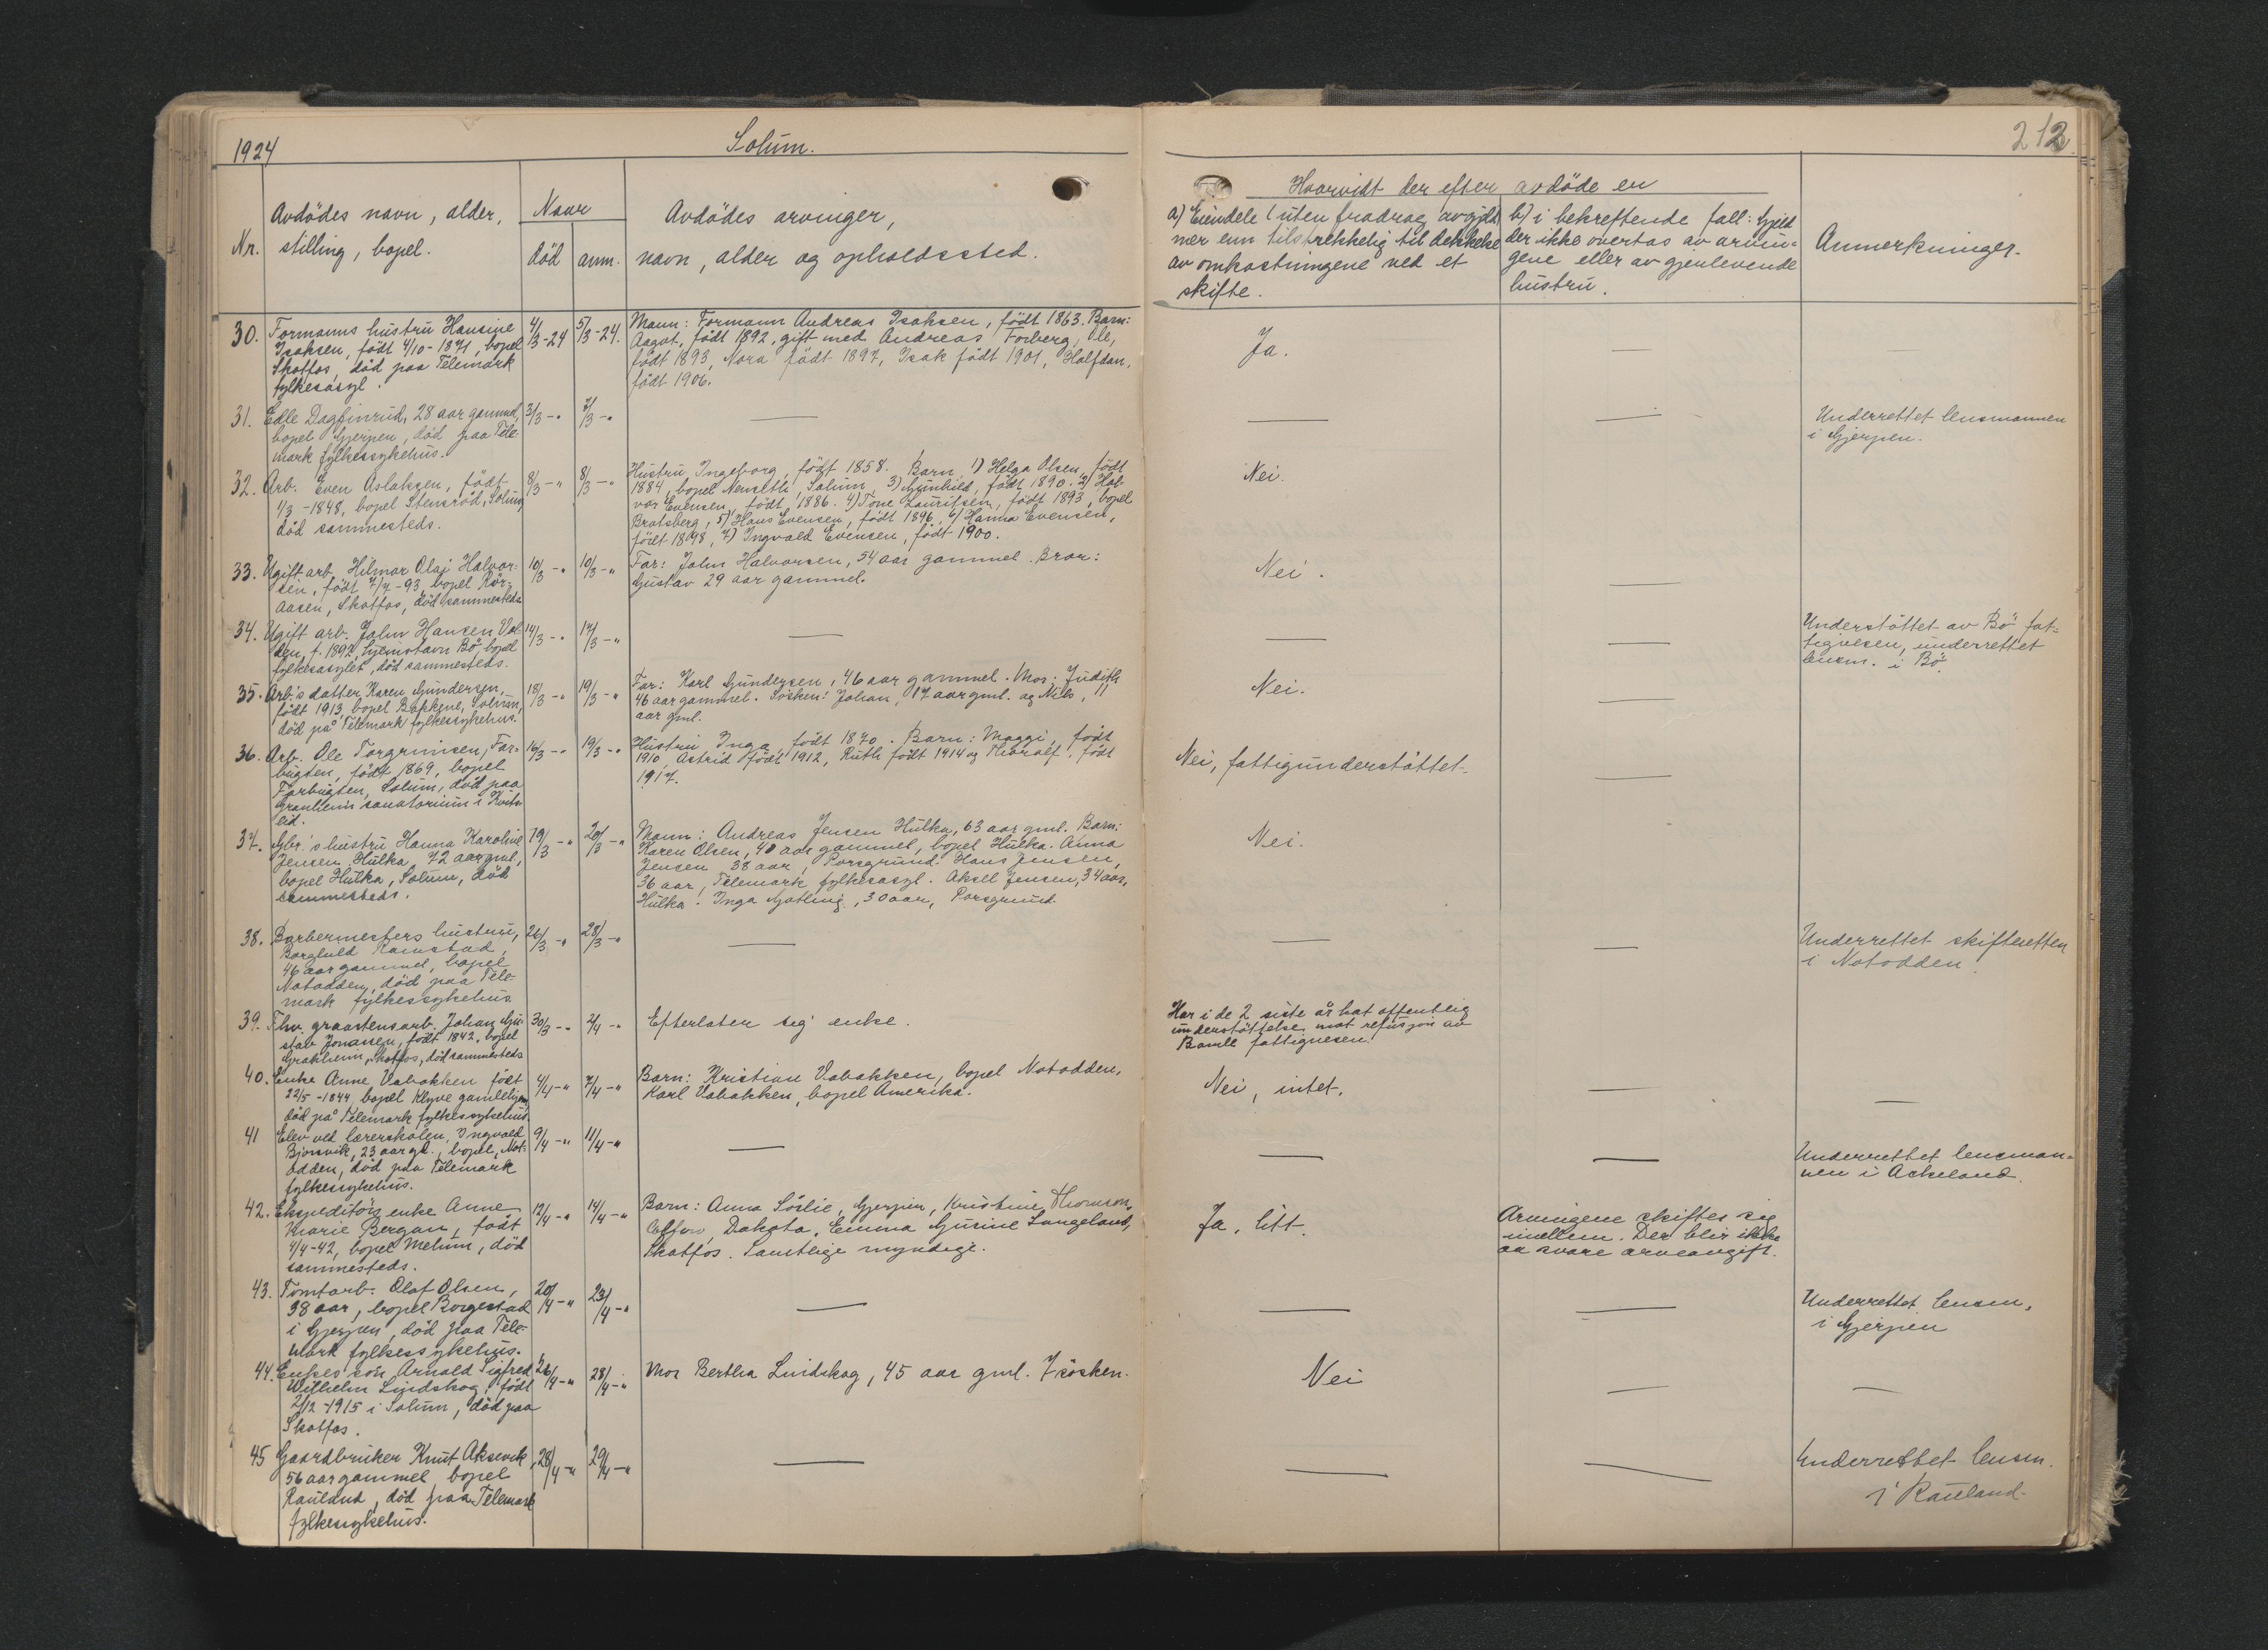 1924
Solum.
212
Nr.
Avdödes navn, alder,
stilling, bopel.
Naar
död
anm.
Avdödes arvinger,
navn, alder og opholdssted.
Hvorvidt der efter avdöde er
a) Eiendele (uten fradrag av gjeld)
mer enn tilstrekkelig til dekkelse
av omkostningene ved et
skifte.
b) i bekreftende fall: Gjeld
der ikke overtas av arvin-
gene eller av gjenlevende
hustru.
Anmerkninger.
30. Formanns hustru Hansine
Isaksen, födt 4/10-1871, bopel
Skotfos, död paa Telemark
fylkesasyl.
4/3-24
5/3-24.
Mann: Formann Andreas Isaksen, födt 1863. Barn:
Aagot, födt 1892, gift med Andreas Forberg, Ole,
födt 1893, Nora födt 1897, Isak födt 1901, Halfdan,
födt 1906.
Ja.
—
—
31. Edle Dagfinrud, 28 aar gammel,
bopel Gjerpen, död paa Tele-
mark fylkessykehus.
3/3 - "
7/3 - "
—
—
—
Underrettet lensmannen
i Gjerpen.
32. Arb. Even Aslaksen, födt
1/3-1848, bopel Stensröd, Solum,
död sammesteds.
8/3 - "
8/3 - "
Hustru Ingeborg, födt 1858. Barn 1) Helga Olsen, födt
1884, bopel Nenseth, Solum, 3) Gunhild, födt 1890. 2) Hal-
vor Evensen, födt 1886. 4) Tone Lauritsen, födt 1893, bopel
Bratsberg, 5) Hans Evensen, födt 1896, 6) Hanna Evensen,
födt 1898, 7) Ingvald Evensen, födt 1900.
Nei.
33. Ugift arb. Hilmar Olaj Halvor-
sen, födt 7/7-93, bopel Rör-
aasen, Skotfos, död sammesteds
10/3 - "
10/3 - "
Far: John Halvorsen, 54 aar gammel. Bror:
Gustav 29 aar gammel.
Nei.
—
34. Ugift arb. John Hansen
f. 1892, hjemstavn Bö, bopel
fylkesasylet, död sammesteds.
14/3 - "
17/3 - "
—
—
—
Understöttet av Bö fat-
tigvesen, underrettet
lensm. i Bö.
35. Arb.'s datter Karen Gundersen,
födt 1913, bopel Bakkene, Solum,
död på Telemark fylkessykehus.
18/3 - "
19/3 - "
Far: Karl Gundersen, 46 aar gammel. Mor: Judith
46 aar gammel. Sösken: Johan, 17 aar gml. og Nils, 11
aar gml.
Nei.
—
36. Arb. Ole Torgrimsen, Far-
bugten, födt 1869, bopel
Farbugten, Solum, död paa
Granheim sanatorium i Kvits-
eid.
16/3 - "
19/3 - "
Hustru Inga födt 1870. Barn: Maggi, födt
1910, Astrid födt 1912, Ruth födt 1914 og Thoralf, födt
1917.
Nei, fattigunderstöttet.
—
37. Gbr.'s hustru Hanna Karoline
Jensen Hulka, 72 aar gml,
bopel Hulka, Solum, död
sammesteds.
19/3 - "
20/3 - "
Mann: Andreas Jensen Hulka, 63 aar gml. Barn:
Karen Olsen, 40 aar gammel, bopel Hulka. Anna
Jensen 38 aar, Porsgrund. Hans Jensen,
36 aar, Telemark fylkesasyl. Aksel Jensen, 34 aar,
Hulka. Inga 30 aar, Porsgrund.
Nei.
38. Barbermesters hustru,
Borghild Ramstad,
46 aar gammel, bopel
Notodden, död paa Tele-
mark fylkessykehus
26/3 - "
28/3 - "
—
—
—
Underrettet skifteretten
i Notodden.
39. Fhv. graastensarb. Johan Gu-
stav Jonassen, födt 1842, bopel
Skotfos, död sammesteds
30/3 - "
2/4 - "
Efterlater sig enke.
Har i de 2 siste år hat offentlig
understöttelse mot refusjon av
Bamle fattigvesen.
40. Enke Anne Vabakken födt
22/5-1844, bopel Klyve gamlehjem,
död på Telemark fylkessykehus.
4/4 - "
7/4 - "
Barn: Kristian Vabakken, bopel Notodden,
Karl Vabakken, bopel Amerika.
Nei, intet.
—
—
41 Elev ved lærerskolen, Ingvald
Bjorvik, 23 aar gl., bopel, Not-
odden, död paa Telemark
fylkessykehus.
9/4 - "
11/4 - "
—
—
—
Underrettet lensman-
nen i Askeland.
42. Ekspeditörs enke Anne
Marie Bergan, födt
4/4-42, bopel Melum, död
sammesteds.
12/4 - "
14/4 - "
Barn: Anna Sörlie, Gjerpen, Kristine Thomson,
Dakota, Emma Gurine Langeland,
Skotfos. Samtlige myndige.
Ja, litt.
Arvingene skiftes sig
imellem. Der blir ikke
aa svare arveavgift.
43. Tomtarb. Olaf Olsen,
38 aar, bopel Borgestad
i Gjerpen, död paa Tele-
mark fylkessykehus.
20/4 - "
23/4 - "
—
—
—
Underrettet lensm.
i Gjerpen
44. Enkes sön Arnold Sigfred
Wilhelm Lindskog, födt
2/12-1915 i Solum, död paa
Skotfos.
26/4 - "
28/4 - "
Mor Bertha Lindskog, 45 aar gml. 7 sösken.
Nei
—
—
45 Gaardbruker Knut Aksevik,
56 aar gammel, bopel
Rauland, död paa Telemark
fylkessykehus.
28/4 - "
29/4 - "
—
—
—
Underrettet lensm.
i Rauland.